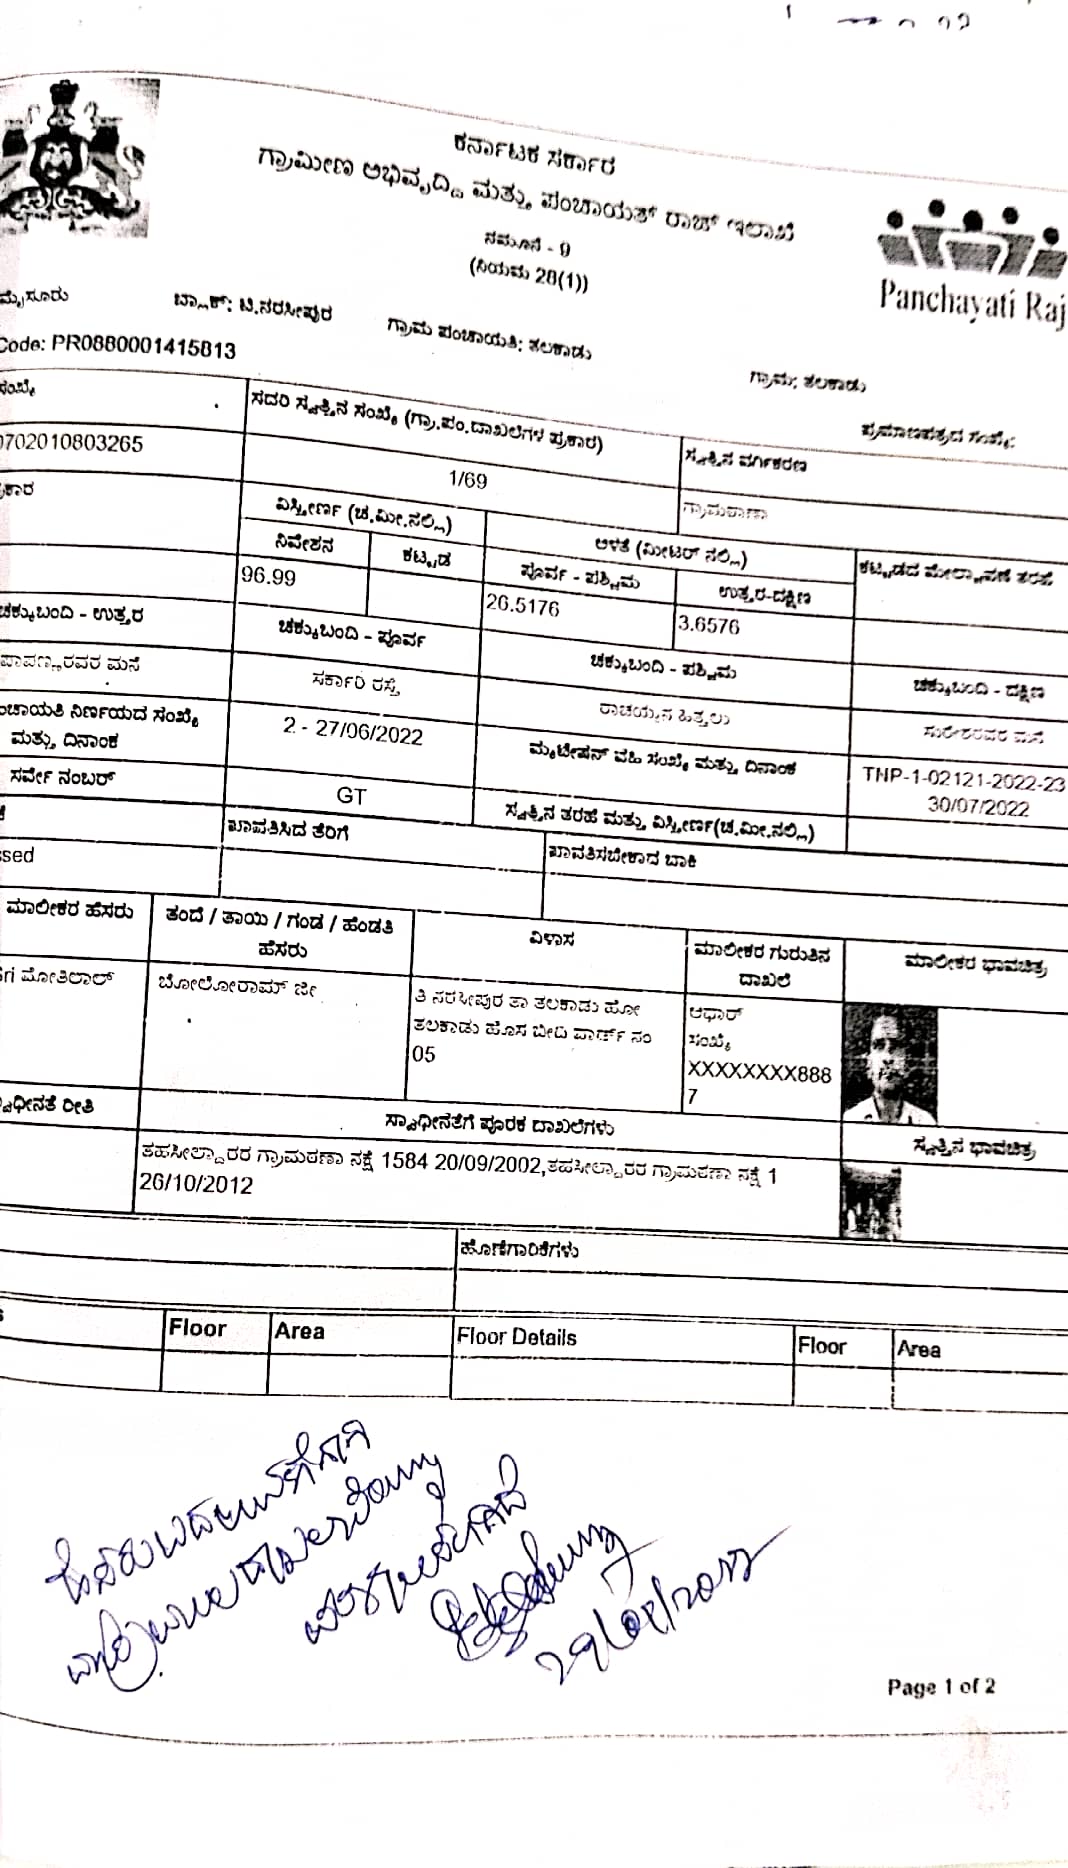 ಕರ್ನಾಟಕ ಸರ್ಕಾರ
ಗ್ರಾಮೀಣ ಅಭಿವೃದ್ಧಿ ಮತ್ತು ಪಂಚಾಯತ್ ರಾಜ್ ಇಲಾಖೆ
ನಮೂನೆ - 9
(ನಿಯಮ 28(1))
Panchayati Raj
ಮೈಸೂರು ಬ್ಲಾಕ್: ಟಿ.ನರಸೀಪುರ ಗ್ರಾಮ ಪಂಚಾಯತಿ: ತಲಕಾಡು ಗ್ರಾಮ: ತಲಕಾಡು
Code: PR0880001415813 ಪ್ರಮಾಣಪತ್ರದ ಸಂಖ್ಯೆ:
ಸಂಖ್ಯೆ ಸದರಿ ಸ್ವತ್ತಿನ ಸಂಖ್ಯೆ (ಗ್ರಾ.ಪಂ.ದಾಖಲೆಗಳ ಪ್ರಕಾರ) ಸ್ವತ್ತಿನ ವರ್ಗೀಕರಣ
0702010803265 1/69 ಗ್ರಾಮಠಾಣಾ
ವಿಸ್ತೀರ್ಣ (ಚ.ಮೀ.ನಲ್ಲಿ) ಅಳತೆ (ಮೀಟರ್ ನಲ್ಲಿ) ಕಟ್ಟಡದ ಮೇಲ್ಛಾವಣಿ ತರಹೆ
ನಿವೇಶನ ಕಟ್ಟಡ ಪೂರ್ವ - ಪಶ್ಚಿಮ ಉತ್ತರ-ದಕ್ಷಿಣ
96.99 26.5176 3.6576
ಚಕ್ಕುಬಂದಿ - ಉತ್ತರ ಚಕ್ಕುಬಂದಿ - ಪೂರ್ವ ಚಕ್ಕುಬಂದಿ - ಪಶ್ಚಿಮ ಚಕ್ಕುಬಂದಿ - ದಕ್ಷಿಣ
ಪಾಪಣ್ಣರವರ ಮನೆ ಸರ್ಕಾರಿ ರಸ್ತೆ ರಾಚಯ್ಯನ ಹಿತ್ತಲು ಸುರೇಶರವರ ಮನೆ
ಂಚಾಯತಿ ನಿರ್ಣಯದ ಸಂಖ್ಯೆ ಮತ್ತು ದಿನಾಂಕ 2 - 27/06/2022 ಮ್ಯುಟೇಷನ್ ವಹಿ ಸಂಖ್ಯೆ ಮತ್ತು ದಿನಾಂಕ TNP-1-02121-2022-23 30/07/2022
ಸರ್ವೇ ನಂಬರ್ GT ಸ್ವತ್ತಿನ ತರಹೆ ಮತ್ತು ವಿಸ್ತೀರ್ಣ(ಚ.ಮೀ.ನಲ್ಲಿ)
ಪಾವತಿಸಿದ ತೆರಿಗೆ ಪಾವತಿಸಬೇಕಾದ ಬಾಕಿ
ssed
ಮಾಲೀಕರ ಹೆಸರು ತಂದೆ / ತಾಯಿ / ಗಂಡ / ಹೆಂಡತಿ ಹೆಸರು ವಿಳಾಸ ಮಾಲೀಕರ ಗುರುತಿನ ದಾಖಲೆ ಮಾಲೀಕರ ಭಾವಚಿತ್ರ
Sri ಮೋತಿಲಾಲ್ ಬೋಲೋರಾಮ್ ಜೀ ತಿ ನರಸೀಪುರ ತಾ ತಲಕಾಡು ಹೋ ಆಧಾರ್
ತಲಕಾಡು ಹೊಸ ಬೀದಿ ವಾರ್ಡ್ ನಂ ಸಂಖ್ಯೆ
05 XXXXXXXX888
7
ಸ್ವಾಧೀನತೆ ರೀತಿ ಸ್ವಾಧೀನತೆಗೆ ಪೂರಕ ದಾಖಲೆಗಳು ಸ್ವತ್ತಿನ ಭಾವಚಿತ್ರ
ತಹಸೀಲ್ದಾರರ ಗ್ರಾಮಠಣಾ ನಕ್ಷೆ 1584 20/09/2002,ತಹಸೀಲ್ದಾರರ ಗ್ರಾಮಠಣಾ ನಕ್ಷೆ 1
26/10/2012
ಹೊಣೆಗಾರಿಕೆಗಳು
Floor Area Floor Details Floor Area
Page 1 of 2